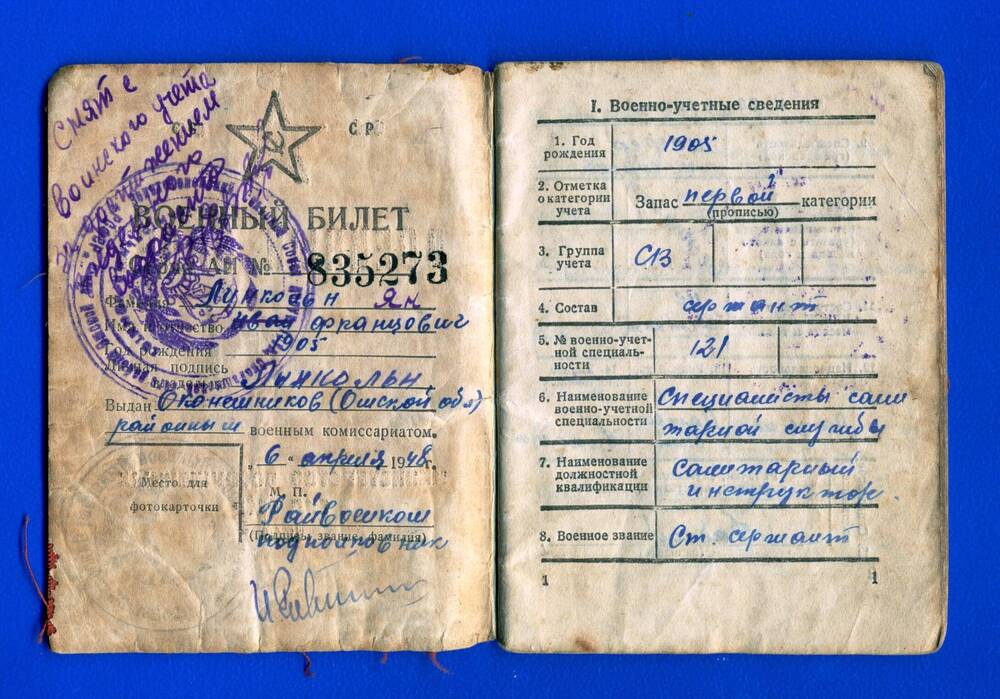 Снят с
воинского учета
С Р
ВОЕННЫЙ БИЛЕТ
№ 835273
Фамилия Линкольн Ян
Имя и отчество Иван Францович
Год рождения 1905
Личная подпись
владельца Линкольн
Выдан Оконешников (Омской обл)
районным военным комиссариатом.
„ 6 " апреля 1948 г.
Место для
фотокарточки
М. П.
Райвоенком
(Подпись, звание, фамилия)
подполковник
I. Военно-учетные сведения
1. Год
рождения
1905
2. Отметка
о категории
учета
Запас первой категории
2
(прописью)
3. Группа
учета
СВ
4. Состав
сержант
5. № военно-учет-
ной специаль-
ности
121
6. Наименование
военно-учетной
специальности
Специалисты сани
тарной службы
7. Наименование
должностной
квалификации
Санитарный
инструктор.
8. Военное звание
Ст. сержант
1
1